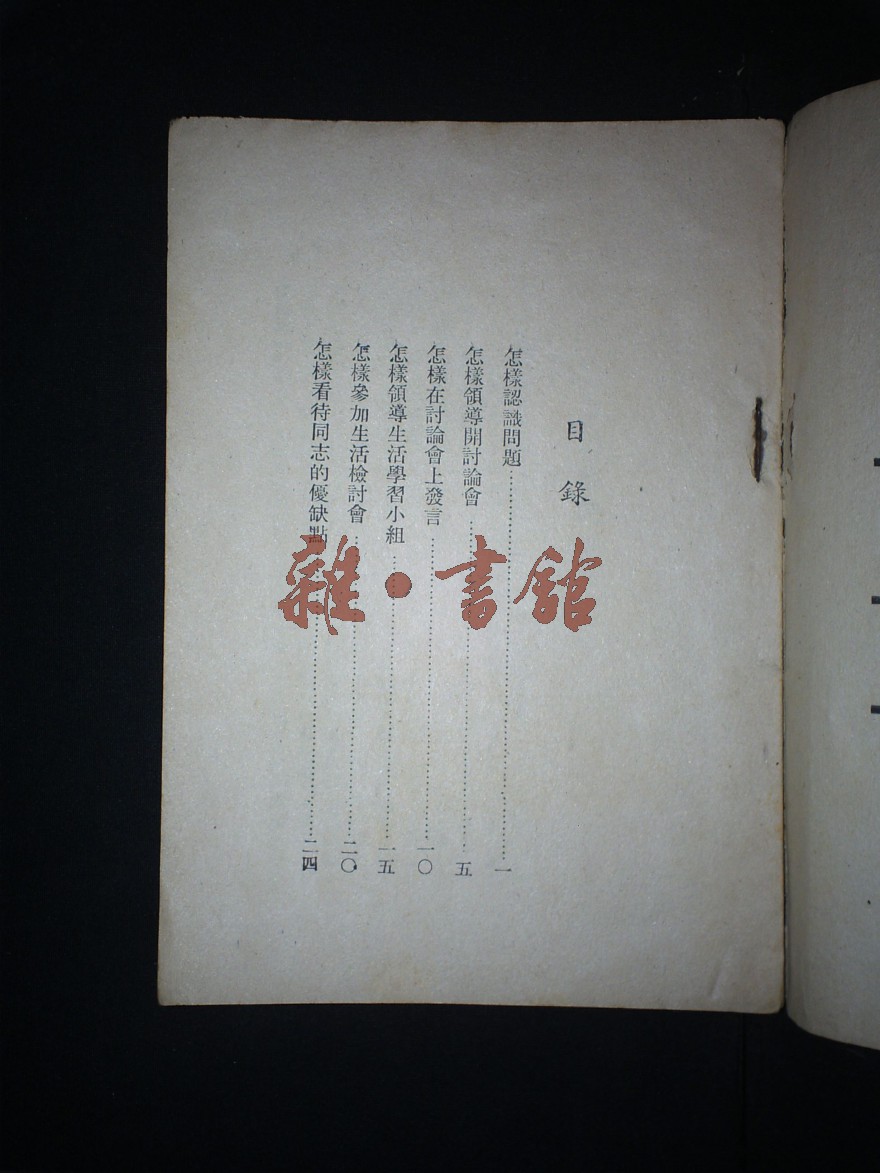 目錄
怎樣認識問題……一
怎樣領導開討論會……五
怎樣在討論會上發言……一〇
怎樣領導生活學習小組……一五
怎樣參加生活檢討會……二〇
怎樣看待同志的優缺點……二四
雜·書館